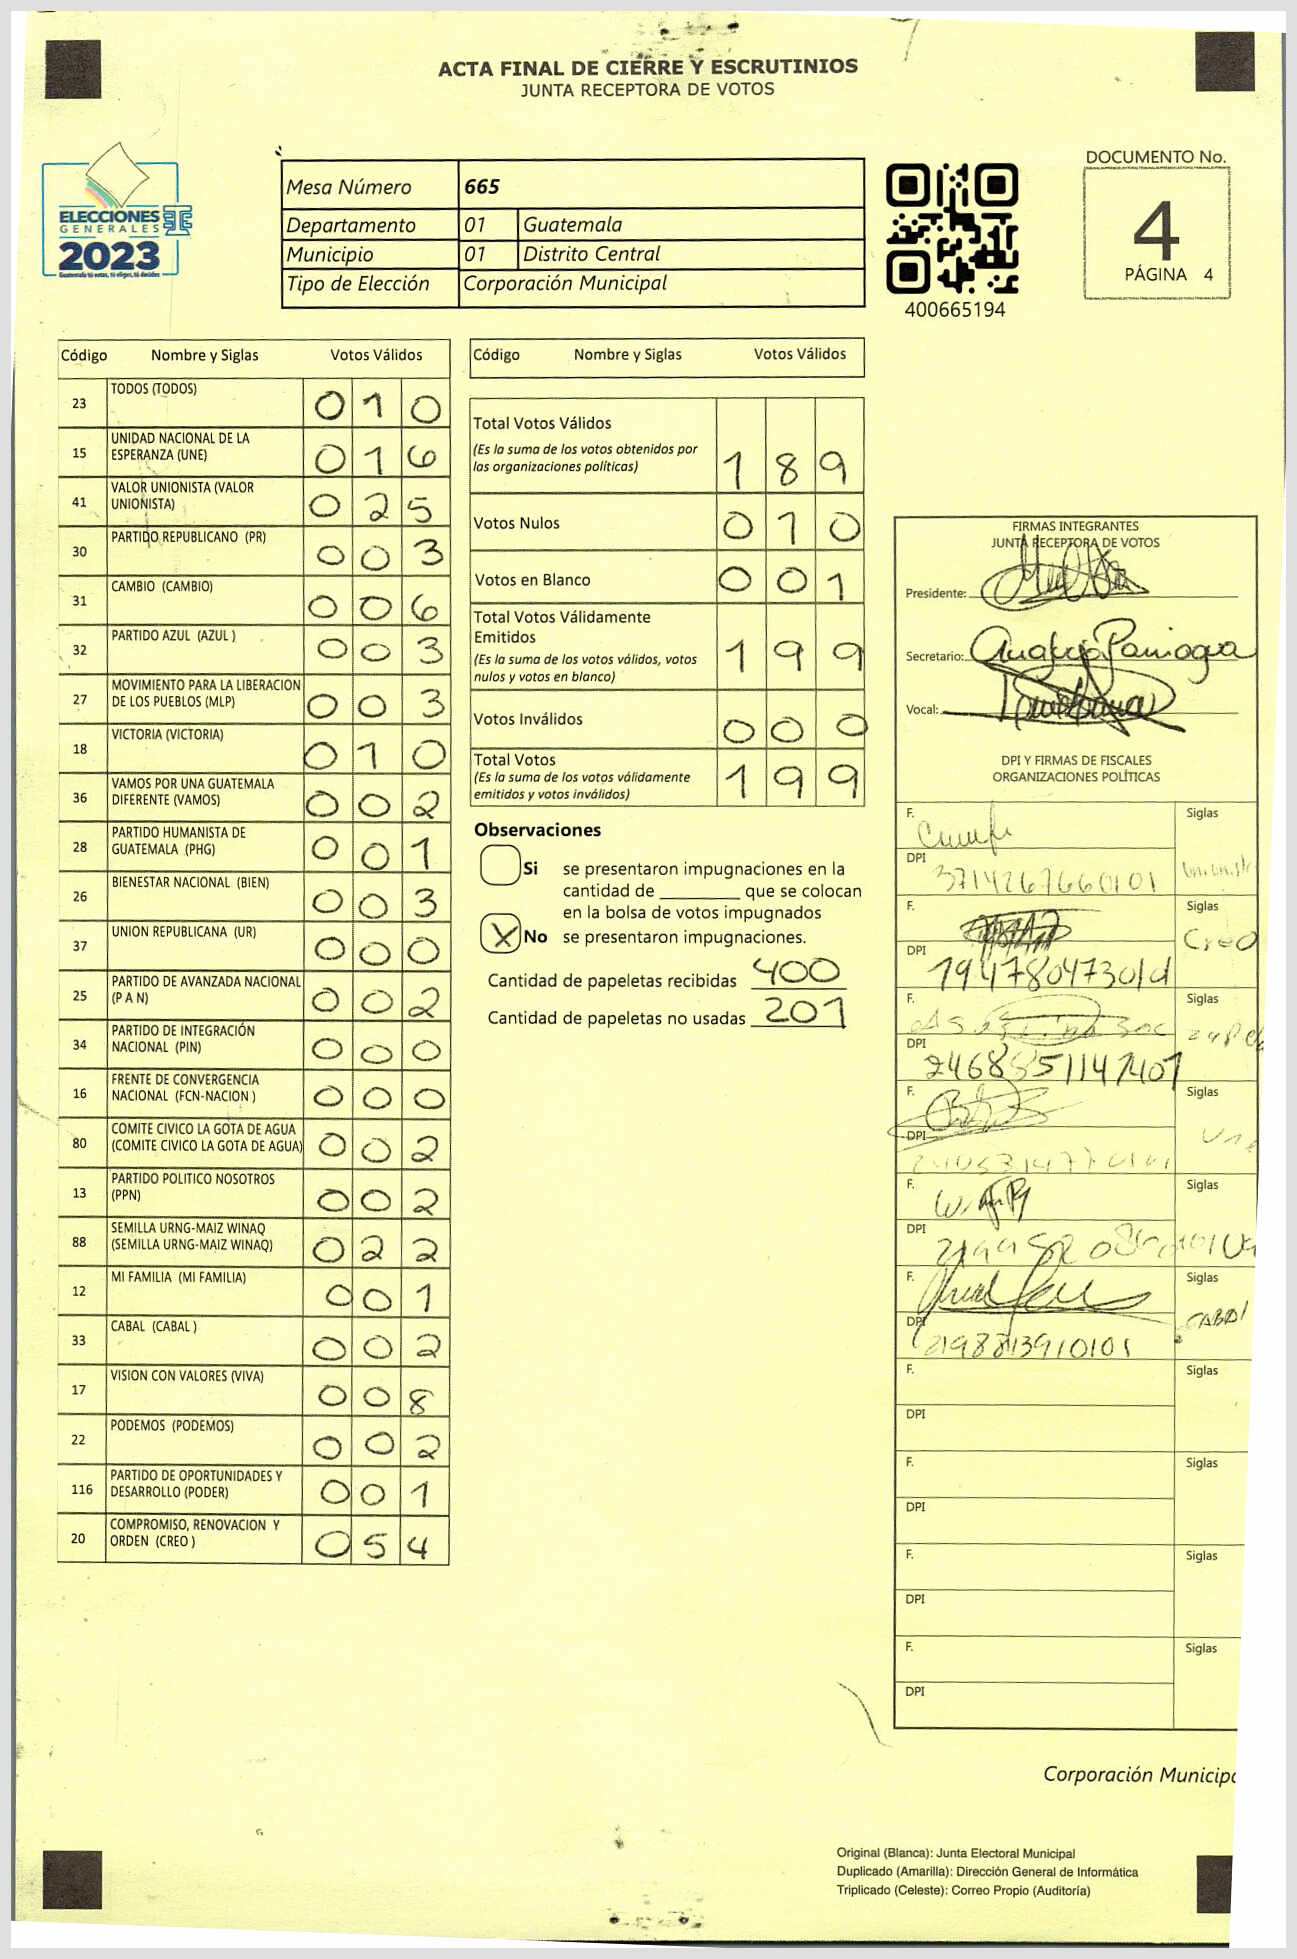 ACTA FINAL DE CIERRE Y ESCRUTINIOS
JUNTA RECEPTORA DE VOTOS
ELECCIONES
GENERALES
2023
Guatemala tú votas, tú eliges, tú decides
Mesa Número 665
Departamento 01 Guatemala
Municipio 01 Distrito Central
Tipo de Elección Corporación Municipal
400665194
DOCUMENTO No.
4
PÁGINA 4
Código Nombre y Siglas Votos Válidos
23 TODOS (TODOS) 0 1 0
15 UNIDAD NACIONAL DE LA
ESPERANZA (UNE) 0 1 6
41 VALOR UNIONISTA (VALOR
UNIONISTA) 0 2 5
30 PARTIDO REPUBLICANO (PR) 0 0 3
31 CAMBIO (CAMBIO) 0 0 6
32 PARTIDO AZUL (AZUL ) 0 0 3
27 MOVIMIENTO PARA LA LIBERACION
DE LOS PUEBLOS (MLP) 0 0 3
18 VICTORIA (VICTORIA) 0 1 0
36 VAMOS POR UNA GUATEMALA
DIFERENTE (VAMOS) 0 0 2
28 PARTIDO HUMANISTA DE
GUATEMALA (PHG) 0 0 1
26 BIENESTAR NACIONAL (BIEN) 0 0 3
37 UNION REPUBLICANA (UR) 0 0 0
25 PARTIDO DE AVANZADA NACIONAL
(P A N) 0 0 2
34 PARTIDO DE INTEGRACIÓN
NACIONAL (PIN) 0 0 0
16 FRENTE DE CONVERGENCIA
NACIONAL (FCN-NACION ) 0 0 0
80 COMITE CIVICO LA GOTA DE AGUA
(COMITE CIVICO LA GOTA DE AGUA) 0 0 2
13 PARTIDO POLITICO NOSOTROS
(PPN) 0 0 2
88 SEMILLA URNG-MAIZ WINAQ
(SEMILLA URNG-MAIZ WINAQ) 0 2 2
12 MI FAMILIA (MI FAMILIA) 0 0 1
33 CABAL (CABAL ) 0 0 2
17 VISION CON VALORES (VIVA) 0 0 8
22 PODEMOS (PODEMOS) 0 0 2
116 PARTIDO DE OPORTUNIDADES Y
DESARROLLO (PODER) 0 0 1
20 COMPROMISO, RENOVACION Y
ORDEN (CREO ) 0 5 4
Código Nombre y Siglas Votos Válidos
Total Votos Válidos
(Es la suma de los votos obtenidos por
las organizaciones políticas) 1 8 9
Votos Nulos 0 1 0
Votos en Blanco 0 0 1
Total Votos Válidamente
Emitidos
(Es la suma de los votos válidos, votos
nulos y votos en blanco) 1 9 9
Votos Inválidos 0 0 0
Total Votos
(Es la suma de los votos válidamente
emitidos y votos inválidos) 1 9 9
Observaciones
Si se presentaron impugnaciones en la
cantidad de ________ que se colocan
en la bolsa de votos impugnados
X No se presentaron impugnaciones.
Cantidad de papeletas recibidas 400
Cantidad de papeletas no usadas 201
FIRMAS INTEGRANTES
JUNTA RECEPTORA DE VOTOS
Presidente:
Secretario:
Vocal:
DPI Y FIRMAS DE FISCALES
ORGANIZACIONES POLÍTICAS
F. Siglas
DPI 3714267660101
F. Siglas
Creo
DPI
F. Siglas
DPI
F. Siglas
Une
DPI
F. Siglas
DPI
F. Siglas
CABAL
DPI 2198813910101
F. Siglas
DPI
F. Siglas
DPI
F. Siglas
DPI
F. Siglas
DPI
Corporación Municip
Original (Blanca): Junta Electoral Municipal
Duplicado (Amarilla): Dirección General de Informática
Triplicado (Celeste): Correo Propio (Auditoría)